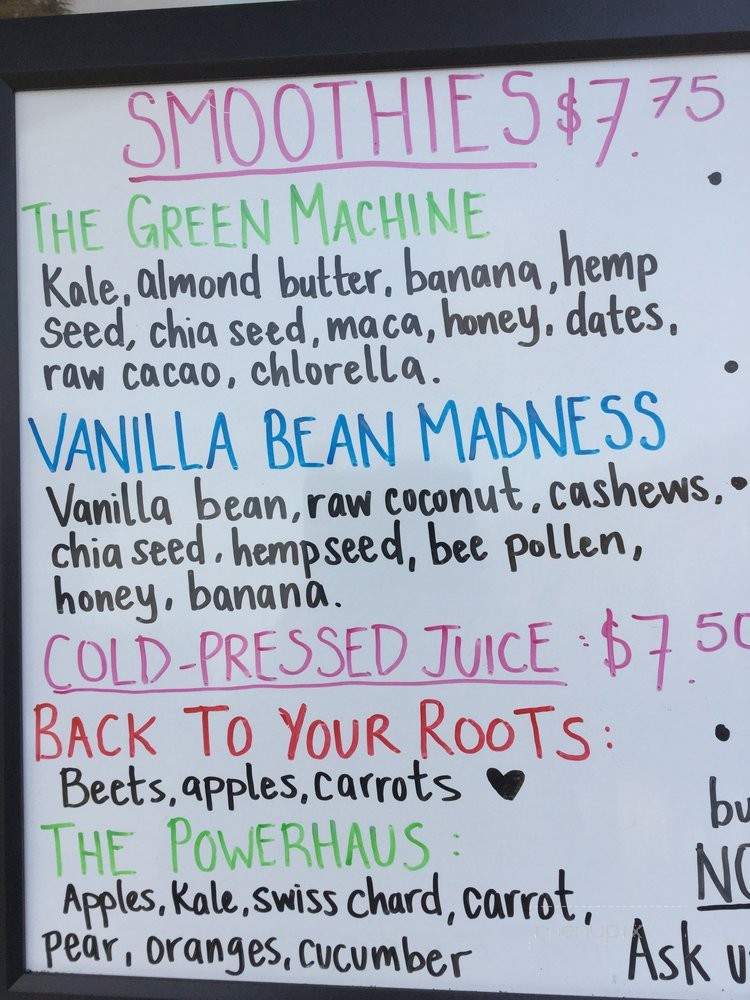 SMOOTHIES $7.75
THE GREEN MACHINE
Kale, almond butter, banana, hemp
seed, chia seed, maca, honey, dates,
raw cacao, chlorella.
VANILLA BEAN MADNESS
Vanilla bean, raw coconut, cashews,
chia seed, hempseed, bee pollen,
honey, banana.
COLD-PRESSED JUICE : $7.50
BACK TO YOUR ROOTS:
Beets, apples, carrots ♥
THE POWERHAUS:
Apples, Kale, swiss chard, carrot,
pear, oranges, cucumber
bu
NO
Ask u